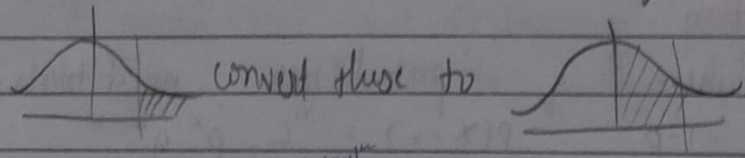 convert these to